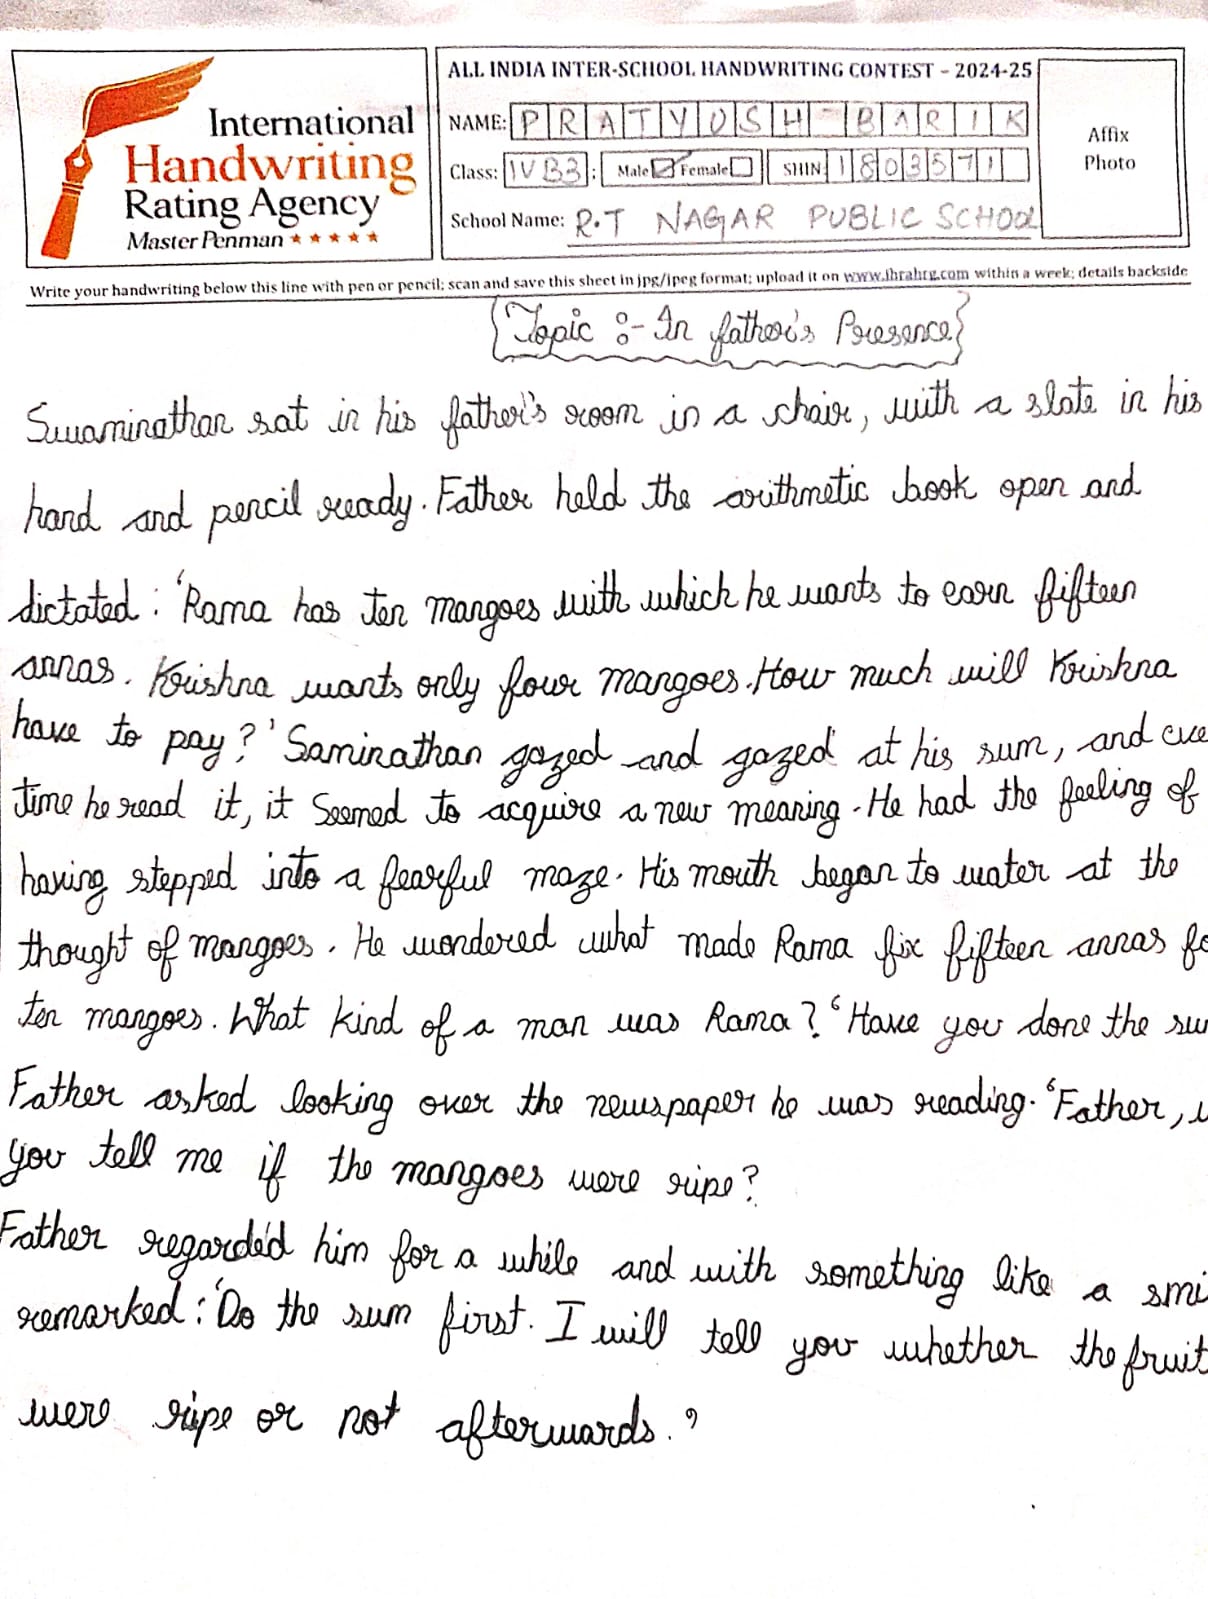 International
Handwriting
Rating Agency
Master Penman
ALL INDIA INTER-SCHOOL HANDWRITING CONTEST - 2024-25
NAME: PRATYUSH BARIK
Class: IVB3 : Male Female SHIN 1803571
School Name: R.T NAGAR PUBLIC SCHOOL
Affix
Photo
Write your handwriting below this line with pen or pencil; scan and save this sheet in jpg/jpeg format; upload it on www.ihrahrg.com within a week; details backside
Topic :- In father's Presence
Swaminathan sat in his father's room in a chair, with a slate in his
hand and pencil ready. Father held the arithmetic book open and
dictated : 'Rama has ten mangoes with which he wants to earn fifteen
annas. Krishna wants only four mangoes. How much will Krishna
have to pay?' Saminathan gazed and gazed at his sum, and eve
time he read it, it Seemed to acquire a new meaning. He had the feeling of
having stepped into a fearful maze. His mouth began to water at the
thought of mangoes. He wondered what made Rama fix fifteen annas fo
ten mangoes. What kind of a man was Rama? 'Have you done the su
Father asked looking over the newspaper he was reading. 'Father,
you tell me if the mangoes were ripe?
Father regarded him for a while and with something like a smi
remarked : 'Do the sum first. I will tell you whether the fruit
were ripe or not afterwards.'